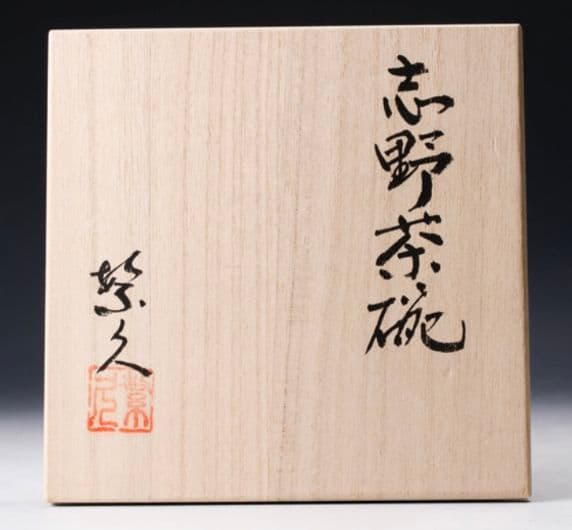 志野茶碗
繁久